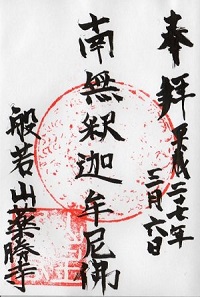 奉拜
平成二十七年
三月六日
南無釈迦牟尼佛
般若山薬勝寺